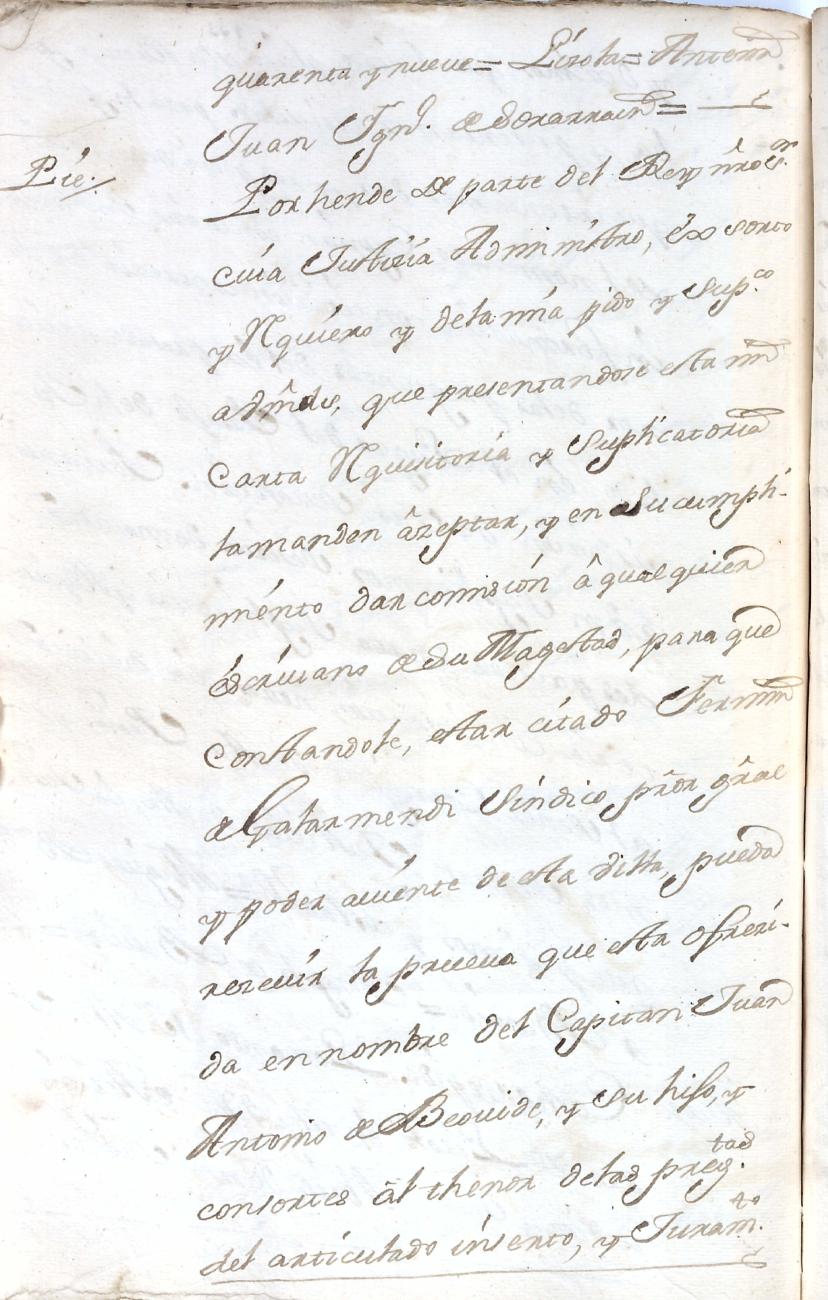 quarenta y nueve = Lizola = Antemi
Juan Ygn.º de Sorarrain =
Pie.
Por hende de parte del Rey nrô Sr.
cuia Justizia Administro, exsorto
y Rquiero y de la mia pido y Sup.co
a Vmds, que presentandose esta mi
Carta Rquisitoria y Suplicatoria
la manden âzeptar, y en Su cumpli-
miento dar comision â qualquier
êscriuano de Su Magestad, para que
Constandole, estar citado Fermin
de Galarmendi Sindico prôr gral
y poder auiente de esta villa, pueda
rezeuir la prueua que esta ofrezi-
da en nombre del Capitan Juan
Antonio de Beouide, y Su hijo, y
consortes âl thenor de las preg.tas
del articulado inserto, y Juram.to